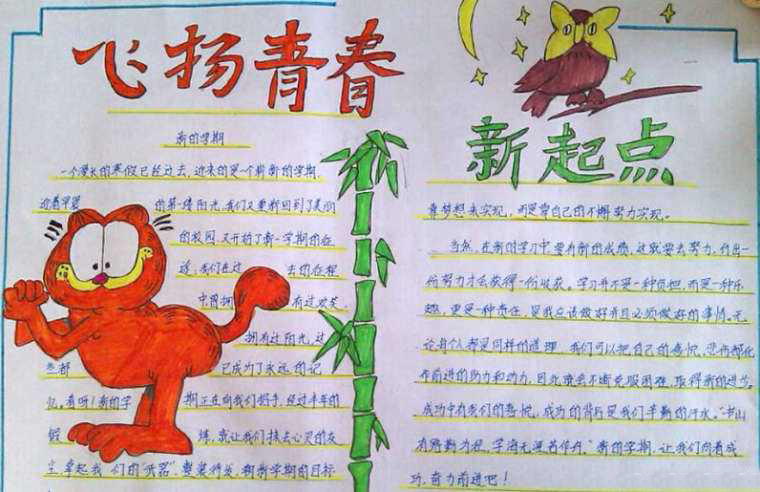 飞扬青春
新的学期
一个漫长的寒假已经过去，迎来的是一个崭新的学期，
迎着早晨的第一缕阳光，我们又重新回到了美丽
的校园，又开始了新一学期的征
途，我们在过去的征程
中得拥有过欢笑，
拥有过阳光，这
些都已成为了永远的记
忆。看呀！新的学期正在向我们招手，经过半年的
锻炼，就让我们抹去心灵的灰
尘，拿起我们的“武器”，整装待发，朝新学期的目标
新起点
靠梦想去实现，而是靠自己的不懈努力实现。
当然，在新的学习中要有新的成绩，这就要去努力，付出一
份努力才会获得一份收获。学习并不是一种负担，而是一种乐
趣，更是一种责任，是我应该做好并且必须做好的事情。无
论每个人都是同样的道理，我们可以把自己的喜悦、悲伤都化
作前进的助力和动力，因此就会不断克服困难，取得新的进步。
成功中有我们的喜悦，成功的背后是我们辛勤的汗水。“书山
有路勤为径，学海无涯苦作舟。”新的学期，让我们向着成
功，奋力前进吧！